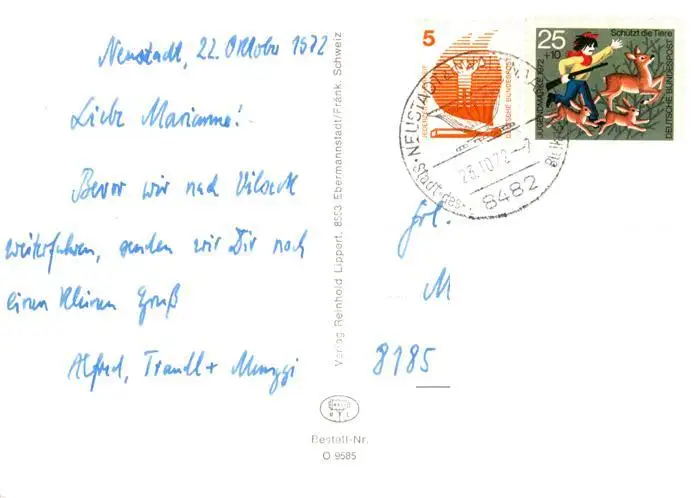 Neustadt, 22. Oktober 1972
Liebe Marianne!
Bevor wir nach Vilseck
weiterfahren, senden wir Dir noch
einen kleinen Gruß
Alfred, Traudl +
Verlag Reinhold Lippert, 8553 Ebermannstadt/Fränk. Schweiz
Bestell-Nr.
O 9585
5
DEUTSCHE BUNDESPOST
25
+10
Schützt die Tiere
JUGENDMARKE 1972
DEUTSCHE BUNDESPOST
NEUSTADT
23.10.72-7
Stadt des
8482
Frl.
M
8185